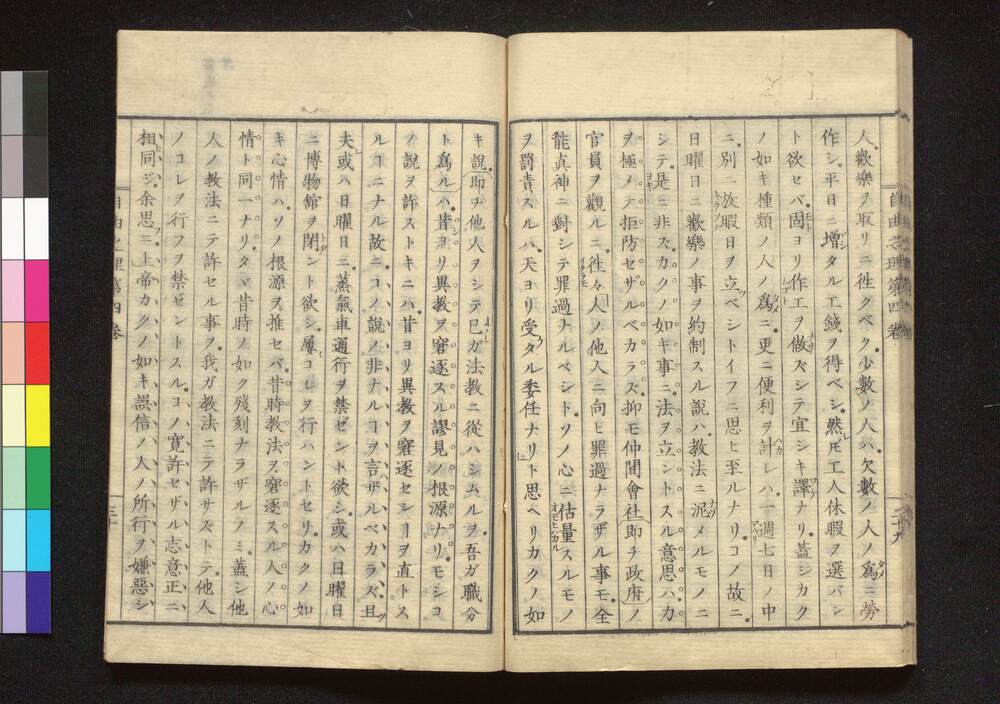 人歡樂ヲ取リニ徃クベク少數ノ人ハ欠數ノ人ノ爲ニ勞
作シ平日ニ增シタル工錢ヲ得ベシ然レ𪜈工人休暇ヲ選バン
ト欲セバ固ヨリ作工ヲ做サズシテ宜シキ譯ナリ蓋シカク
ノ如キ種類ノ人ノ爲ニ更ニ便利ヲ計レバ一週七日ノ中
ニ別ニ放暇日ヲ立ベシトイフニ思ヒ至ルナリコノ故ニ
日曜日ニ歡樂ノ事ヲ約制スル說ハ教法ニ泥メルモノニ
シテ是ニ非ズカクノ如キ事ニ法ヲ立ントスル意思ハカ
ヲ極メテ拒防セザルベカラズ抑モ仲間會社(即チ政府)ノ
官員ヲ觀ルニ徃々人ノ他人ニ向ヒ罪過ナラザル事モ全
能真神ニ對シテ罪過ナルベシトソノ心ニ估量スルモノ
ヲ罰責スルハ天ヨリ受タル委任ナリト思ヘリカクノ如
自由之理第四卷
二十九
キ說(即チ他人ヲシテ己ガ法教ニ從ハシムルヲ吾ガ職分
ト爲ル)ハ昔ヨリ異教ヲ窘逐スル謬見ノ根源ナリモシコ
ノ說ヲ許ストキニハ昔ヨリ異教ヲ窘逐セシヿヲ直トス
ルヿニナル故ニコノ說ノ非ナルヿヲ言ザルベカラズ且
夫或ハ日曜日ニ蒸氣車通行ヲ禁ゼント欲シ或ハ日曜日
ニ博物館ヲ閉ント欲シ屢コレヲ行ハントセリカクノ如
キ心情ハソノ根源ヲ推セバ昔時教法ヲ窘逐スル人ノ心
情ト同一ナリタヾ昔時ノ如ク殘刻ナラザルノミ蓋シ他
人ノ教法ニテ許セル事ヲ我ガ教法ニテ許サズトテ他人
ノコレヲ行フヲ禁ゼントスルコノ寬許セザル志意正ニ
相同ジ余思フニ上帝カクノ如キ誤信ノ人ノ所行ヲ嫌惡シ
自由之理第四卷
三十